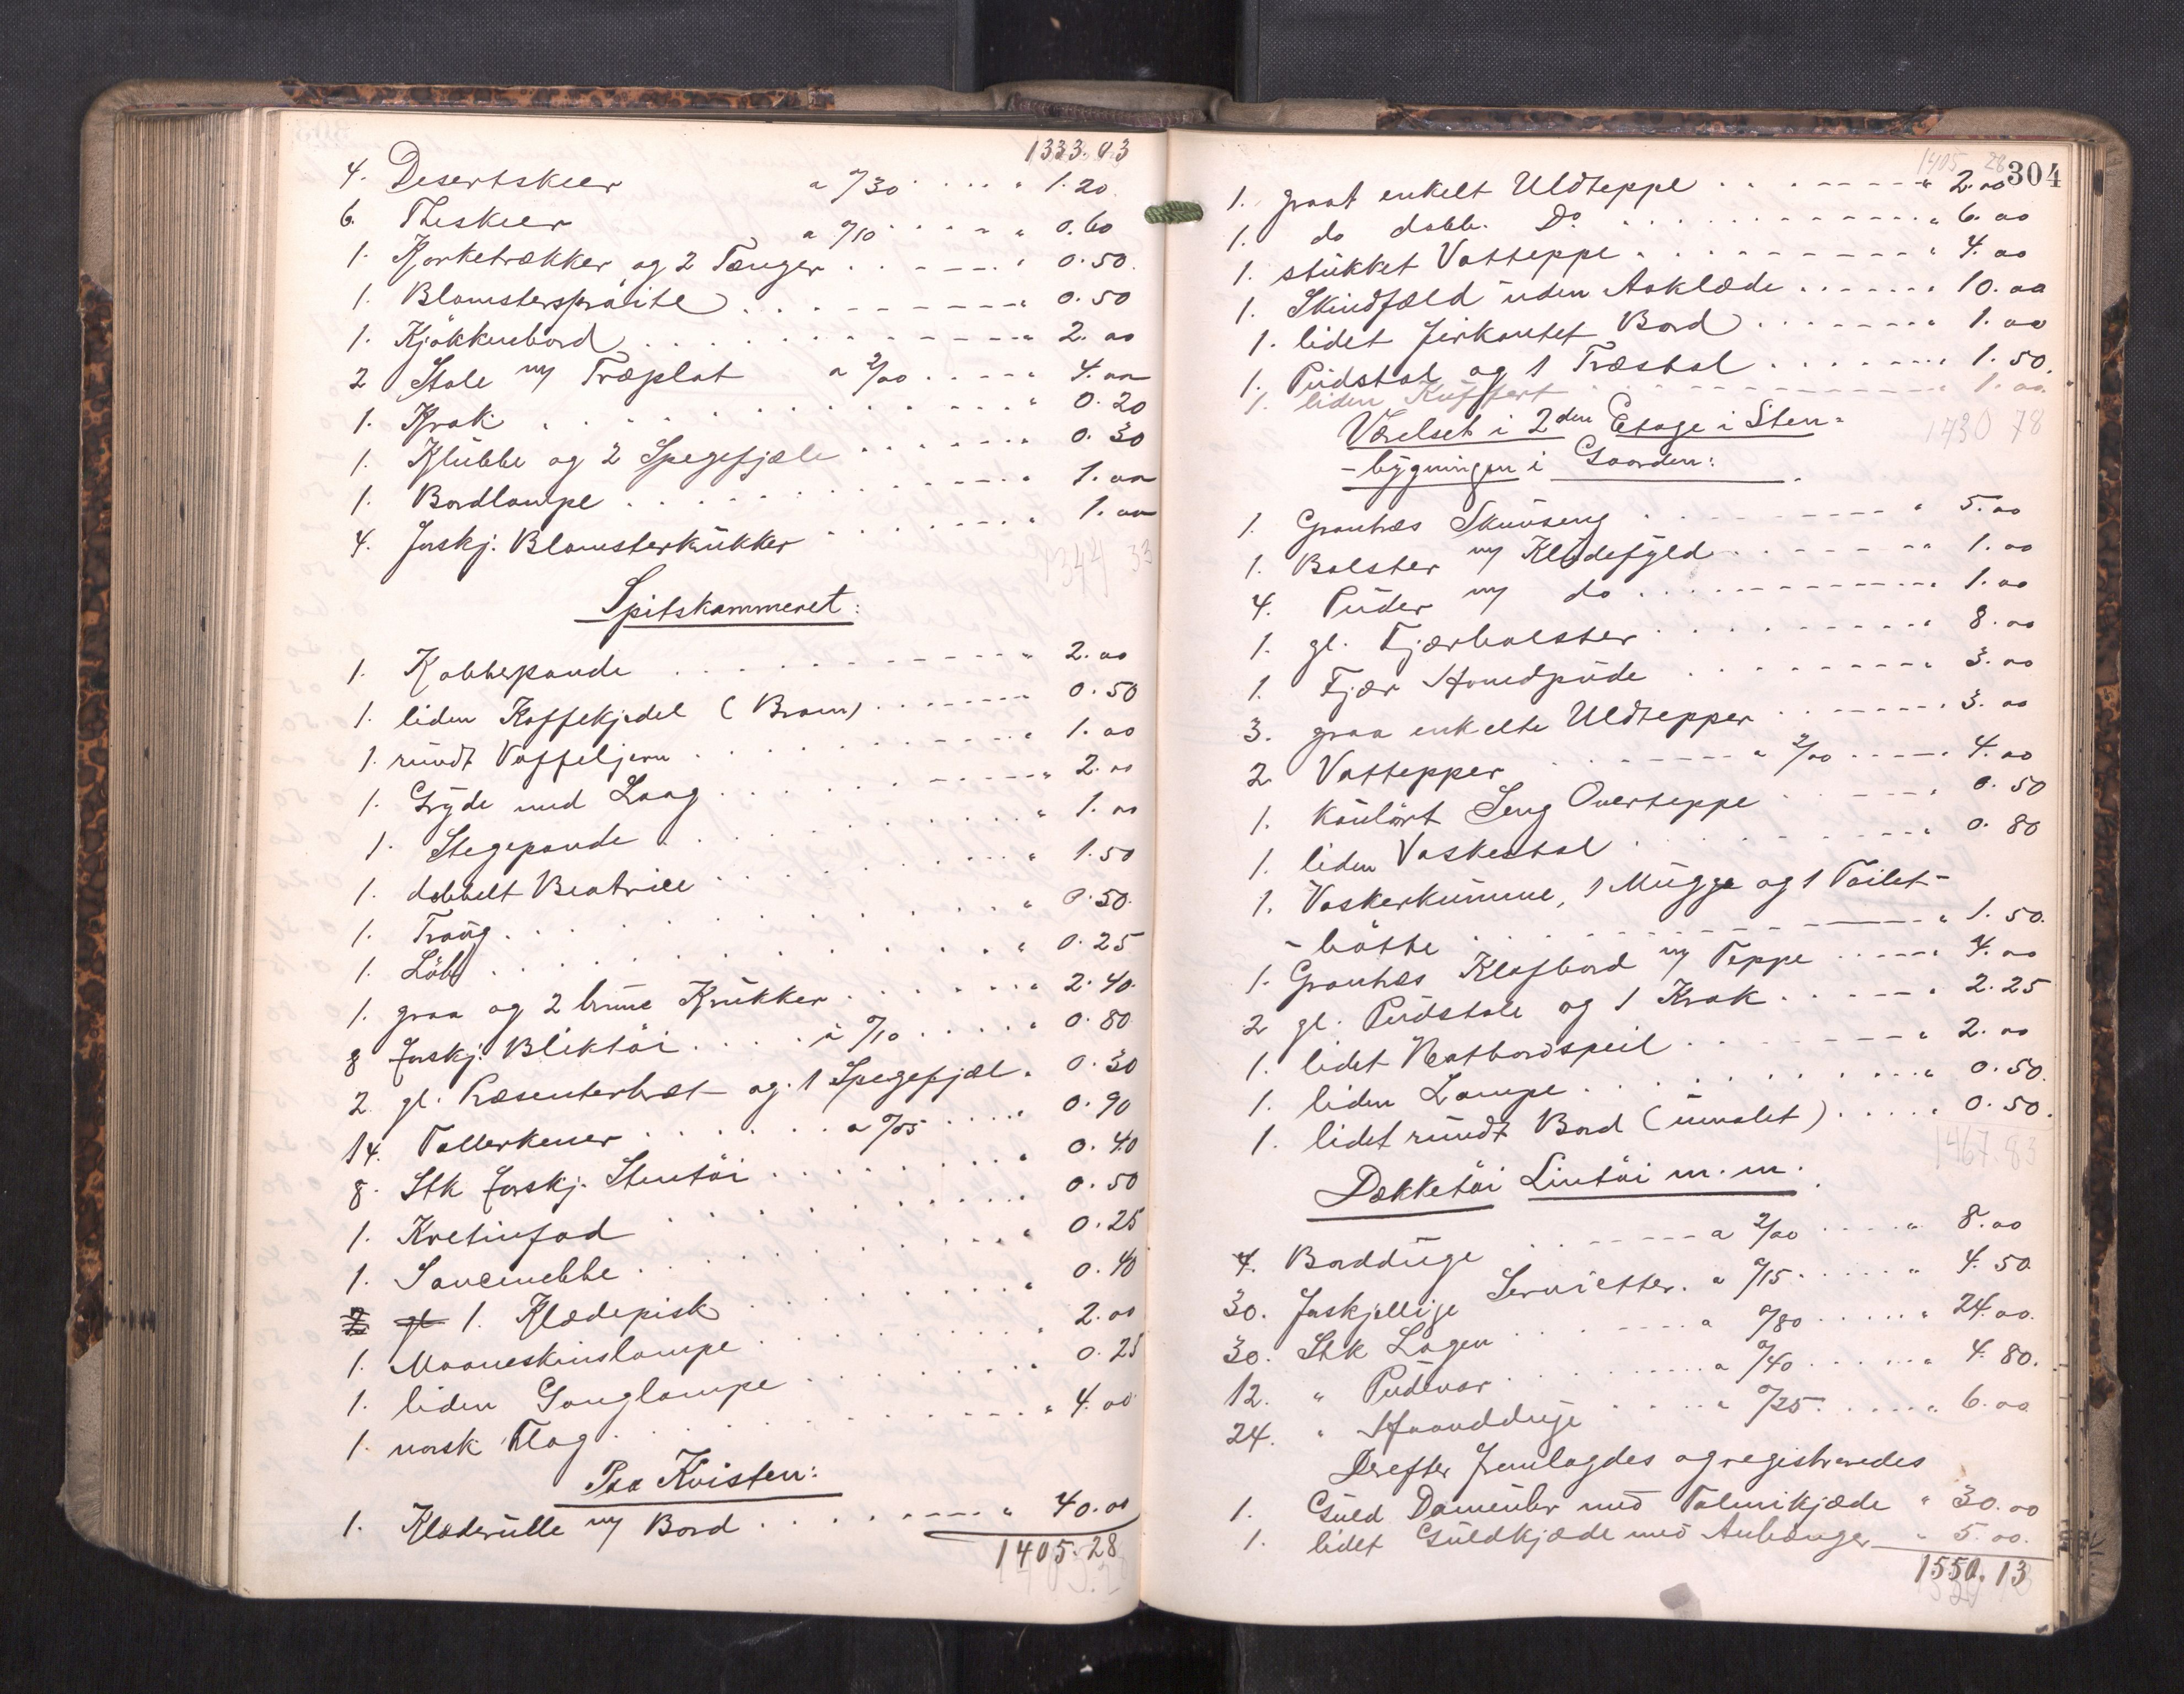 1333.03
4. Desertskeer a 0/30 " 1.20
6. Theskeer a 0/10 " 0.60
1. Korketrækker og 2 Tænger " 0.50
1. Blomstersprøite " 0.50
1. Kjøkkenbord " 2.00
2 Stole m/ Træplat a 2/00 " 4.00
1. Krak " 0.20
1. Klubbe og 2 Spegefjæle 0.30
1. Bordlampe " 1.00
4. forskj. Blomsterkrukker " 1.00
1344 33
Spitskammeret:
1. Kobberpande " 2.00
1. liden Kaffekjedel (Bram) 0.50
1. rundt Vaffeljern " 1.00
1. Gryde med Laag " 2.00
1. Stegepande " 1.00
1. dobbelt Beatrice " 1.50
1. Traug " 0.50
1. Löb " 0.25
1. graa og 2 brune Krukker " 2.40
8 forskj. Bliktöi à 0/10 " 0.80
2 gl. Præsenterbræt og 1 Spegefjæl " 0.30
14. Tallerkener a 0/05 " 0.90
8. Stk forskj. Stentöi " 0.40
1. Kretinfad 0.50
1. Saucenebbe " 0.25
2 gl 1. Klædepisk " 0.40
1. Maaneskinslampe " 2.00
1. liden Ganglampe " 0.25
1. norsk Flag " 4.00
Paa Kvisten:
1. Klæderulle m/ Bord " 40.00
1405.28
1405.28
1405 28
304
1. graat enkelt Uldteppe " 2.00
1. do dobb. Do " 6.00
1. stukket Vatteppe " 4.00
1. Skindfæld uden Aaklæde " 10.00
1. lidet firkantet Bord " 1.00
1. Pudstol og 1 Træstol " 1.50
1. liden Kuffert " 1.00
1430 78
Værelset i 2den Etage i Sten-
-bygningen i Gaarden:
1. Grantræs Skuvseng " 5.00
1. Bolster m/ Kludefyld " 1.00
4. Puder m/ do " 1.00
1. gl. Fjærbolster " 8.00
1. Fjær Hovedpude " 3.00
3. graa enkelte Uldtepper " 3.00
2 Vattepper a 2/00 " 4.00
1. kulört Seng Overteppe " 0.50
1. liden Vaskestol " 0.80
1. Vaskerkumme, 1 Mugge og 1 Toilet-
-bötte " 1.50
1. Grantræs Klafbord m/ Teppe 4.00
2 gl. Pudstole og 1 Krak " 2.25
1. lidet Natbordspeil " 2.00
1. liden Lampe " 0.50
1. lidet rundt Bord (umalet) " 0.50
1467.83
Dækketöi Lintöi m.m.
4. Bordduge a 2/00 " 8.00
30. forskjellige Servietter a 0/15 " 4.50
30. Stk Lagen a 0/80 " 24.00
12. " Pudevar a 0/40 " 4.80
24. " Haandduge " 0/25 " 6.00
Derefter fremlagdes og registreredes
1. Guld Dameuhr med Talmikjæde " 30.00
1. lidet Guldkjæde med Anhænger " 5.00
1550.13